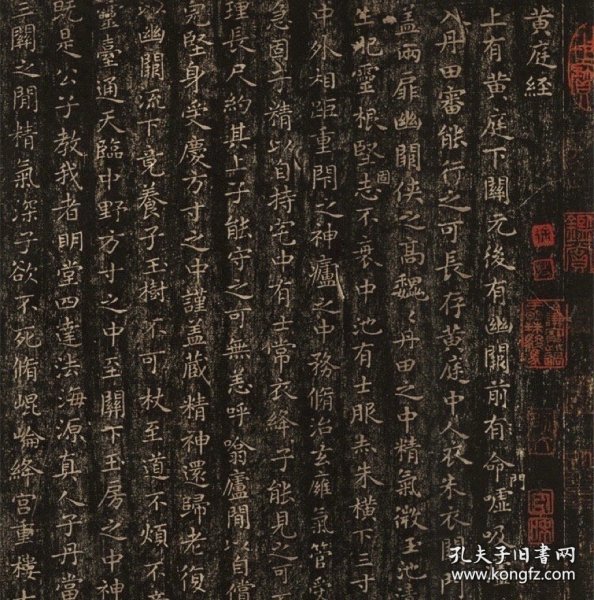 黄庭经
上有黄庭下關元後有幽闕前有命門噓吸廬
入丹田審能行之可長存黄庭中人衣朱衣關門
盖兩扉幽關俠之髙魏〻丹田之中精氣微玉池
生肥靈根堅固志不衰中池有士服赤朱橫下三寸
中外相距重閇之神廬之中務脩治玄雍氣管受
急固子精以自持宅中有士常衣絳子能見之可
理長尺約其上子能守之可無恙呼噏廬閒以自償
完堅身受慶方寸之中謹盖藏精神還歸老復
以幽闕流下竟養子玉樹不可杖至道不煩不
靈臺通天臨中野方寸之中至關下玉房之中神
既是公子教我者明堂四達法海源真人子丹當
三關之閒精氣深子欲不死脩崐崘絳宫重樓
孔夫子旧書网
www.kongfz.com